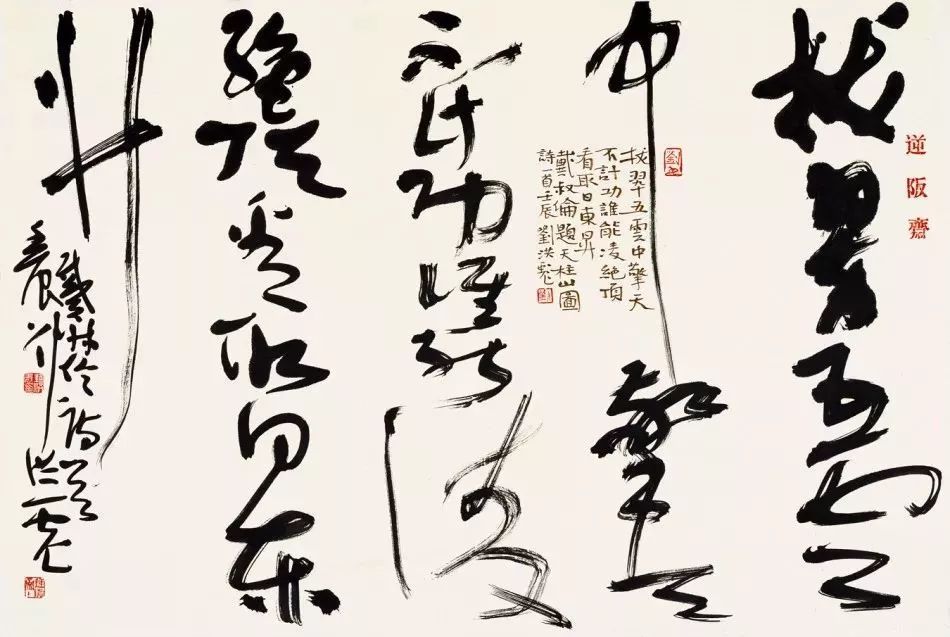 逆阪齋
拔翠五雲
中擎天
拔翠五雲中擎天
不計功誰能凌絕頂
看取日東昇
戴叔倫題天柱山圖
詩一首壬辰劉洪彪
不計功誰能凌
絕頂看取日東
升
戴叔倫詩 洪彪
壬辰